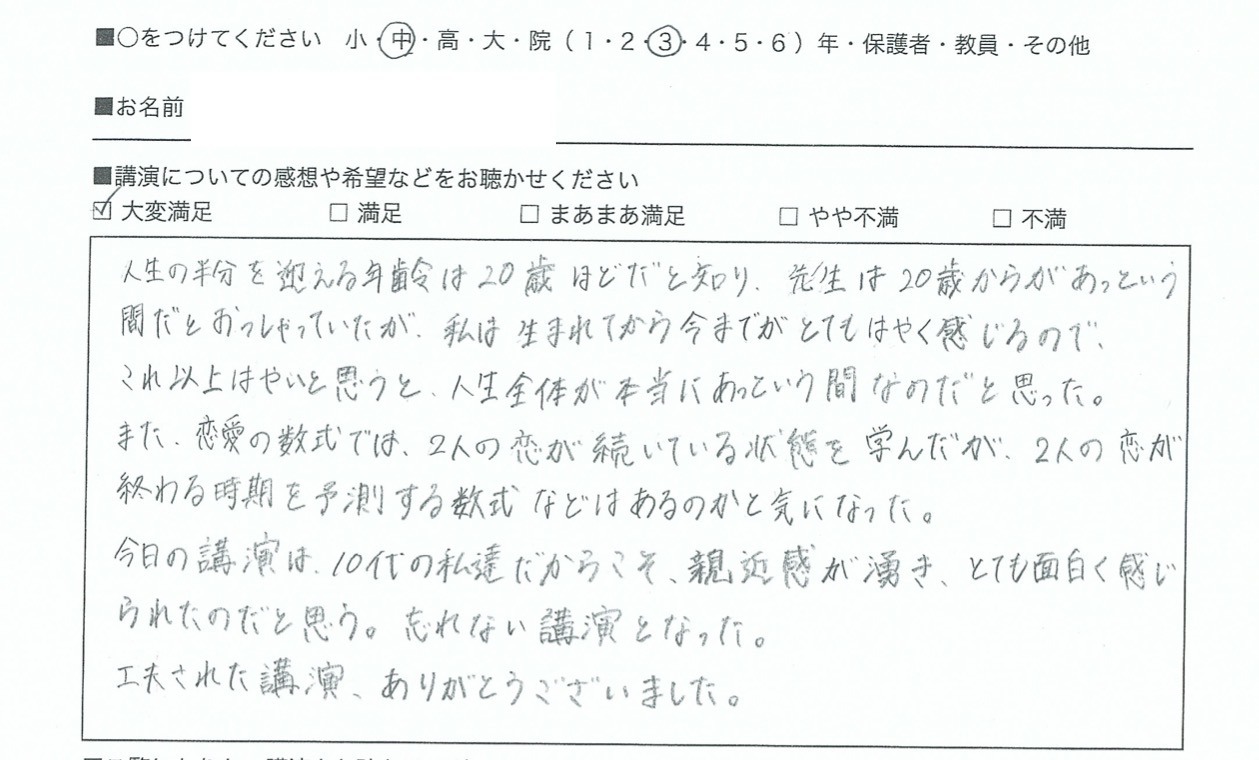 ■○をつけてください　小・中・高・大・院（1・2・3・4・5・6）年・保護者・教員・その他
■お名前
■講演についての感想や希望などをお聴かせください
☑ 大変満足　□ 満足　□ まあまあ満足　□ やや不満　□ 不満
人生の半分を迎える年齢は20歳ほどだと知り、先生は20歳からがあっという
間だとおっしゃっていたが、私は生まれてから今までがとてもはやく感じるので、
これ以上はやいと思うと、人生全体が本当にあっという間なのだと思った。
また、恋愛の数式では、2人の恋が続いている状態を学んだが、2人の恋が
終わる時期を予測する数式などはあるのかと気になった。
今日の講演は、10代の私達だからこそ、親近感が湧き、とても面白く感じ
られたのだと思う。忘れない講演となった。
工夫された講演、ありがとうございました。